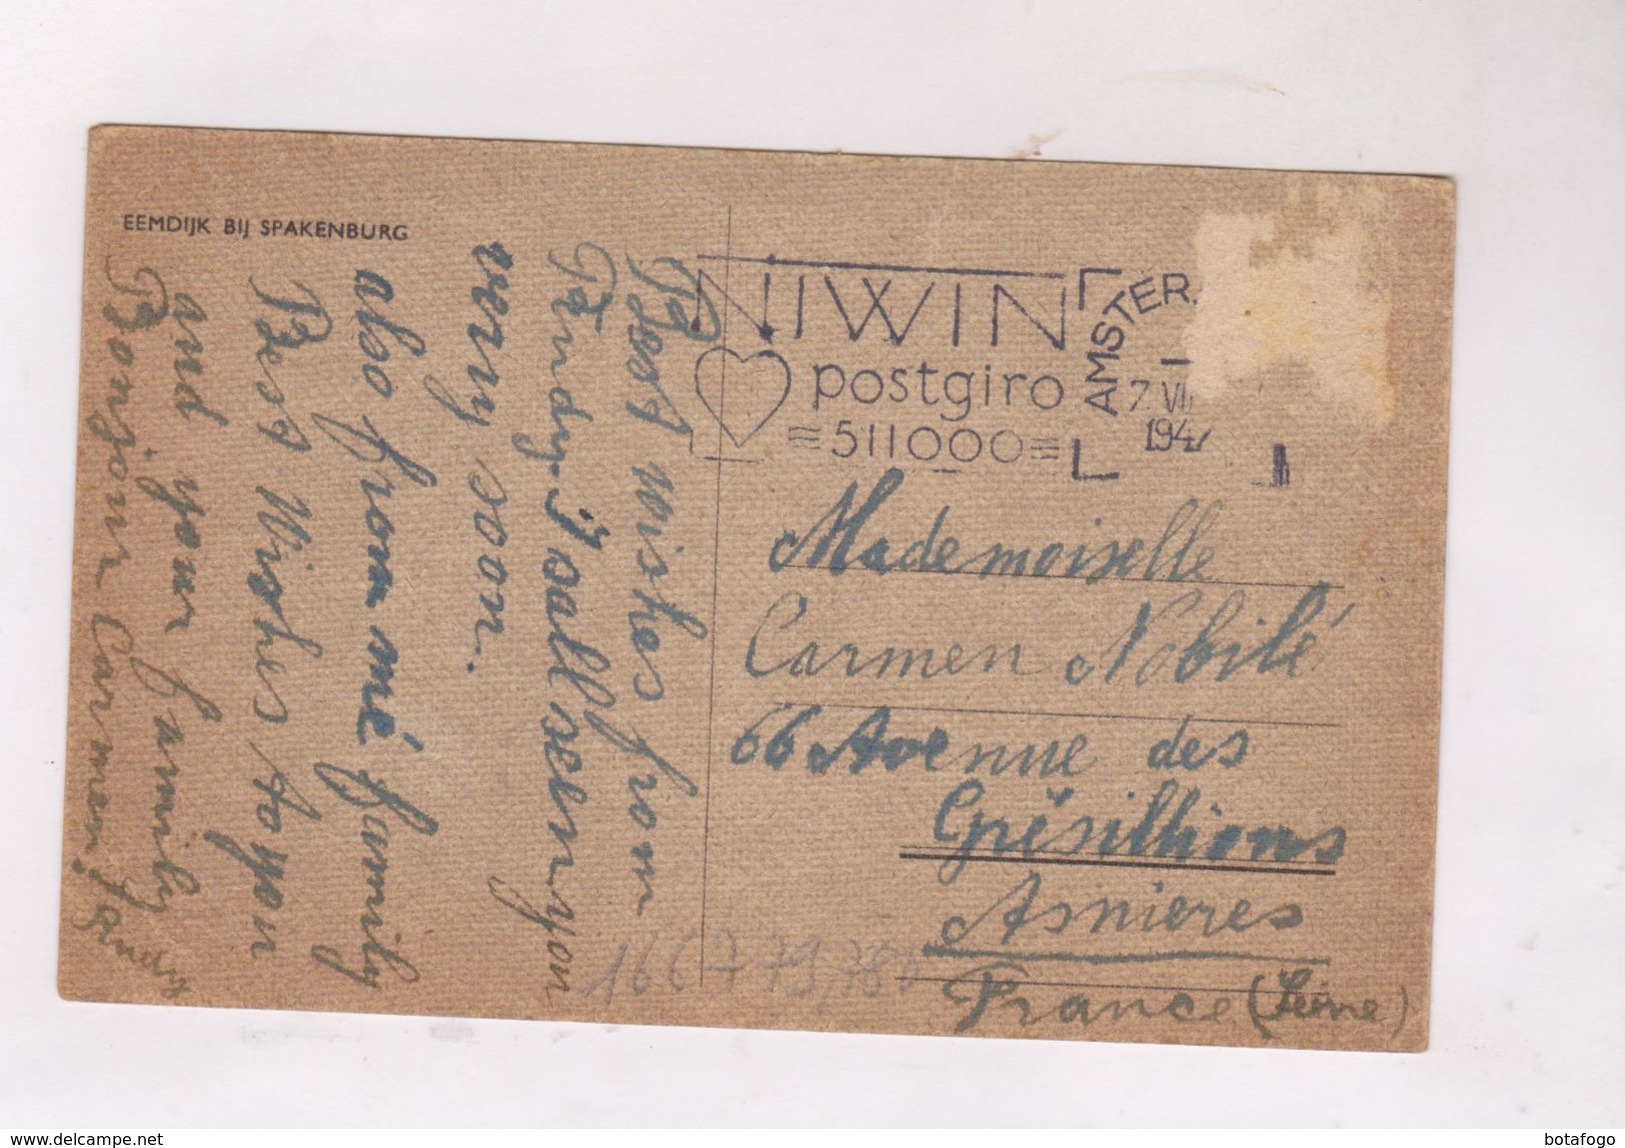 EEMDIJK BIJ SPAKENBURG
Best wishes from
Rudy. I sall sein you
very soon.
also from mé family
Best Wishes to you
and your family
Bonjour Carmen! Rudy
NIWIN
postgiro
511000
AMSTER
7 VII
1947
Mademoiselle
Carmen Nobilé
66 Avenue des
Grésillions
Asnieres
France (Seine)
delcampe.net
botafogo